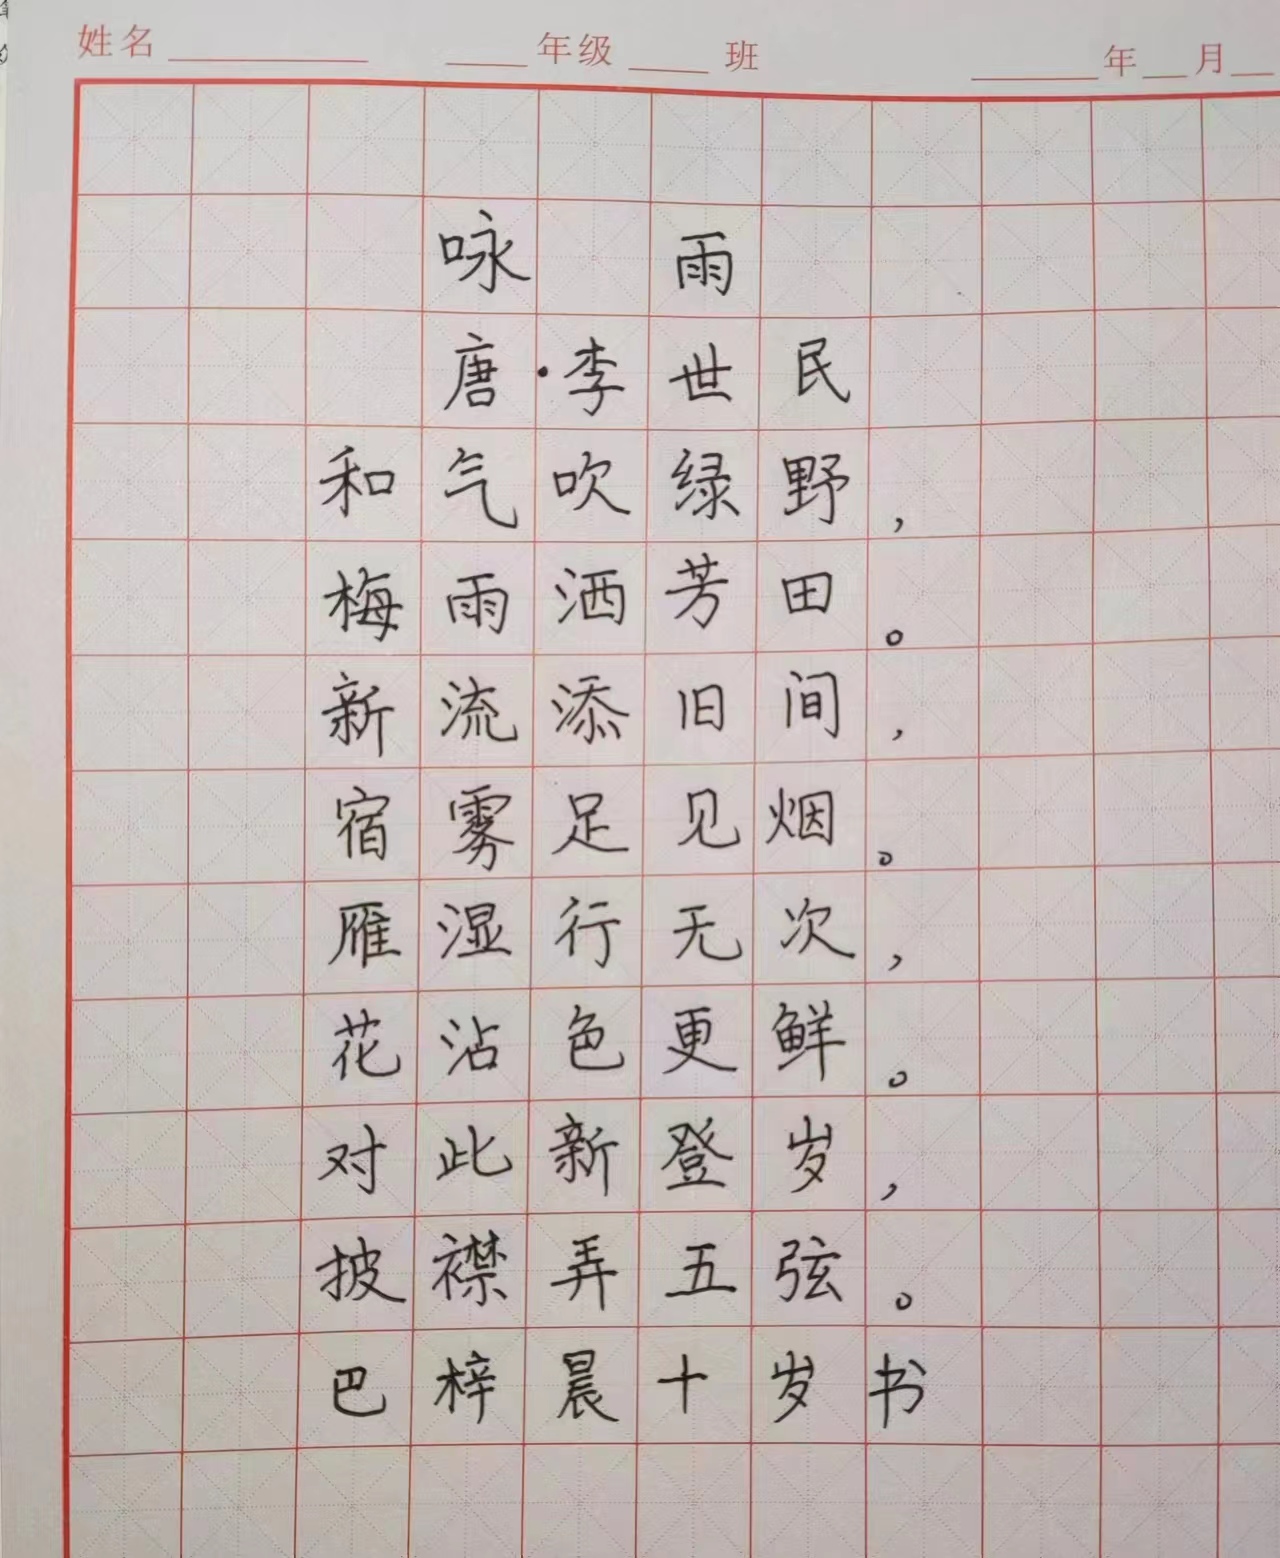 姓名 年级 班 年 月
咏 雨
唐·李世民
和气吹绿野，
梅雨洒芳田。
新流添旧间，
宿雾足见烟。
雁湿行无次，
花沾色更鲜。
对此新登岁，
披襟弄五弦。
巴梓晨十岁书